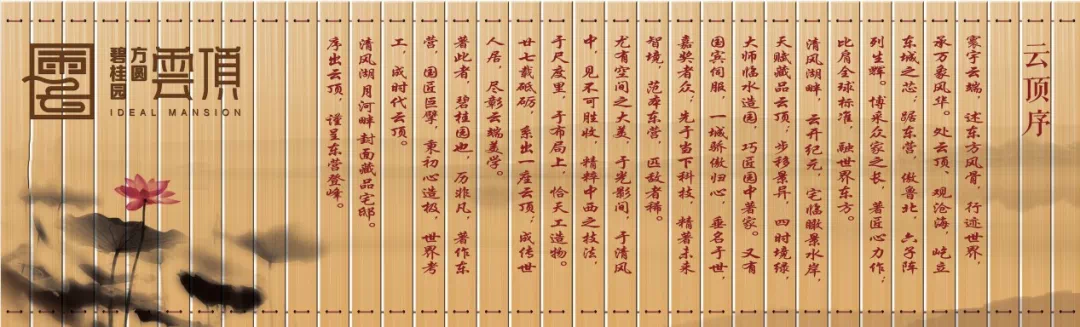 云顶序
寰宇云端，述东方风骨，行迹世界，
承万象风华。处云顶、观沧海，屹立
东城之芯；踞东营，傲鲁北，六子阵
列生辉。博采众家之长，著匠心力作；
比肩全球标准，融世界东方。
清风湖畔，云开纪元，宅临瞰景水岸，
天赋藏品云顶；步移景异，四时境绿，
大师临水造园，巧匠园中著家。又有
国宾伺服，一城骄傲归心，垂名于世，
嘉奖者众；先于当下科技，精著未来
智境，范本东营，匹敌者稀。
尤有空间之大美，于光影间，于清风
中，见不可胜收，精粹中西之技法，
于尺度里，于布局上，恰天工造物。
廿七载砥砺，系出一座云顶；成传世
人居，尽彰云端美学。
著此者，碧桂园也，历非凡，著作东
营，国匠巨擘，秉初心造极，世界考
工，成时代云顶。
清风湖月河畔封面藏品宅邸。
序出云顶，谨呈东营登峰。
碧桂园
方圆
雲頂
IDEAL MANSION